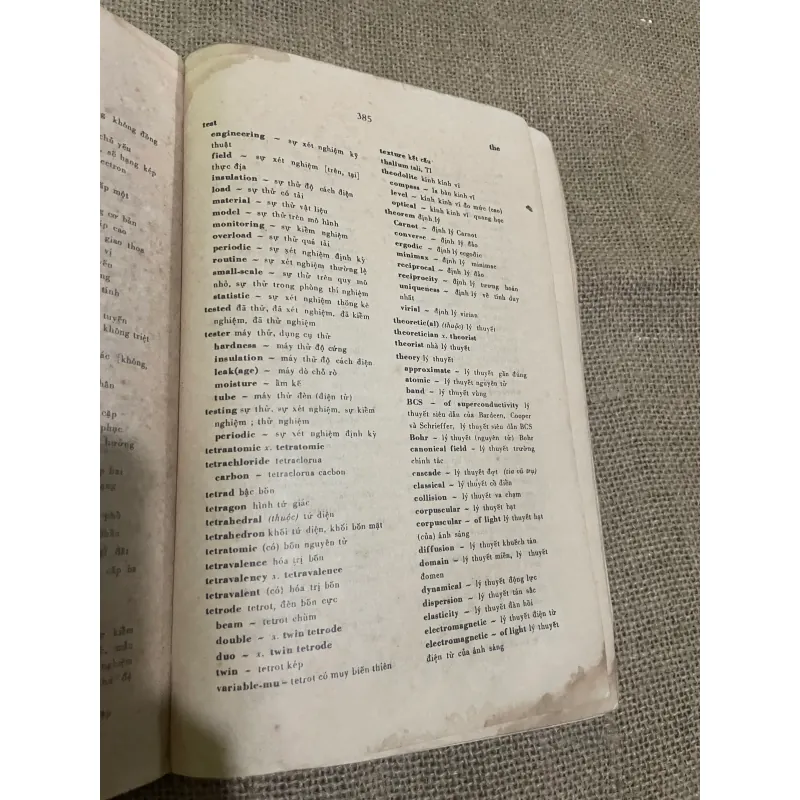 g không đồng
chỗ yếu
số hạng kép
ectron
ập một
g cơ bản
ập cao
giao thoa
vị
tính
tuyến
không triệt
ác (không,
hân
cập
phục
hưởng
385
test
engineering – sự xét nghiệm kỹ
thuật
field – sự xét nghiệm [trên, tại]
thực địa
insulation – sự thử độ cách điện
load – sự thử có tải
material – sự thử vật liệu
model – sự thử trên mô hình
monitoring – sự kiểm nghiệm
overload – sự thử quá tải
periodic – sự xét nghiệm định kỳ
routine – sự xét nghiệm thường lệ
small-scale – sự thử trên quy mô
nhỏ, sự thử trong phòng thí nghiệm
statistic – sự xét nghiệm thống kê
tested đã thử, đã xét nghiệm, đã kiểm
nghiệm, đã thử nghiệm
tester máy thử, dụng cụ thử
hardness – máy thử độ cứng
insulation – máy thử độ cách điện
leak(age) – máy dò chỗ rò
moisture – ẩm kế
tube – máy thử đèn (điện tử)
testing sự thử, sự xét nghiệm, sự kiểm
nghiệm ; thử nghiệm
periodic – sự xét nghiệm định kỳ
tetraatomic x. tetratomic
tetrachloride tetraclorua
carbon – tetraclorua cacbon
tetrad bậc bốn
tetragon hình tứ giác
tetrahedral (thuộc) tứ diện
tetrahedron khối tứ diện, khối bốn mặt
tetratomic (có) bốn nguyên tử
tetravalence hóa trị bốn
tetravalency x. tetravalence
tetravalent (có) hóa trị bốn
tetrode tetrot, đèn bốn cực
beam – tetrot chùm
double – x. twin tetrode
duo – x. twin tetrode
twin – tetrot kép
variable-mu – tetrot có muy biến thiên
the
texture kết cấu
thalium tali, Tl
theodolite kính kinh vĩ
compass – la bàn kinh vĩ
level – kính kinh vĩ đo mức (cao)
optical – kính kinh vĩ quang học
theorem định lý
Carnot – định lý Carnot
converse – định lý đảo
ergodic – định lý ergodic
minimax – định lý minimac
reciprocal – định lý đảo
reciprocity – định lý tương hoán
uniqueness – định lý về tính duy
nhất
virial – định lý virian
theoretic(al) (thuộc) lý thuyết
theoretician x. theorist
theorist nhà lý thuyết
theory lý thuyết
approximate – lý thuyết gần đúng
atomic – lý thuyết nguyên tử
band – lý thuyết vùng
BCS – of superconductivity lý
thuyết siêu dẫn của Bardeen, Cooper
và Schrieffer, lý thuyết siêu dẫn BCS
Bohr – lý thuyết (nguyên tử) Bohr
canonical field – lý thuyết trường
chính tắc
cascade – lý thuyết đợt (tia vũ trụ)
classical – lý thuyết cổ điển
collision – lý thuyết va chạm
corpuscular – lý thuyết hạt
corpuscular – of light lý thuyết hạt
(của) ánh sáng
diffusion – lý thuyết khuếch tán
domain – lý thuyết miền, lý thuyết
đomen
dynamical – lý thuyết động lực
dispersion – lý thuyết tán sắc
elasticity – lý thuyết đàn hồi
electromagnetic – lý thuyết điện từ
electromagnetic – of light lý thuyết
điện từ của ánh sáng